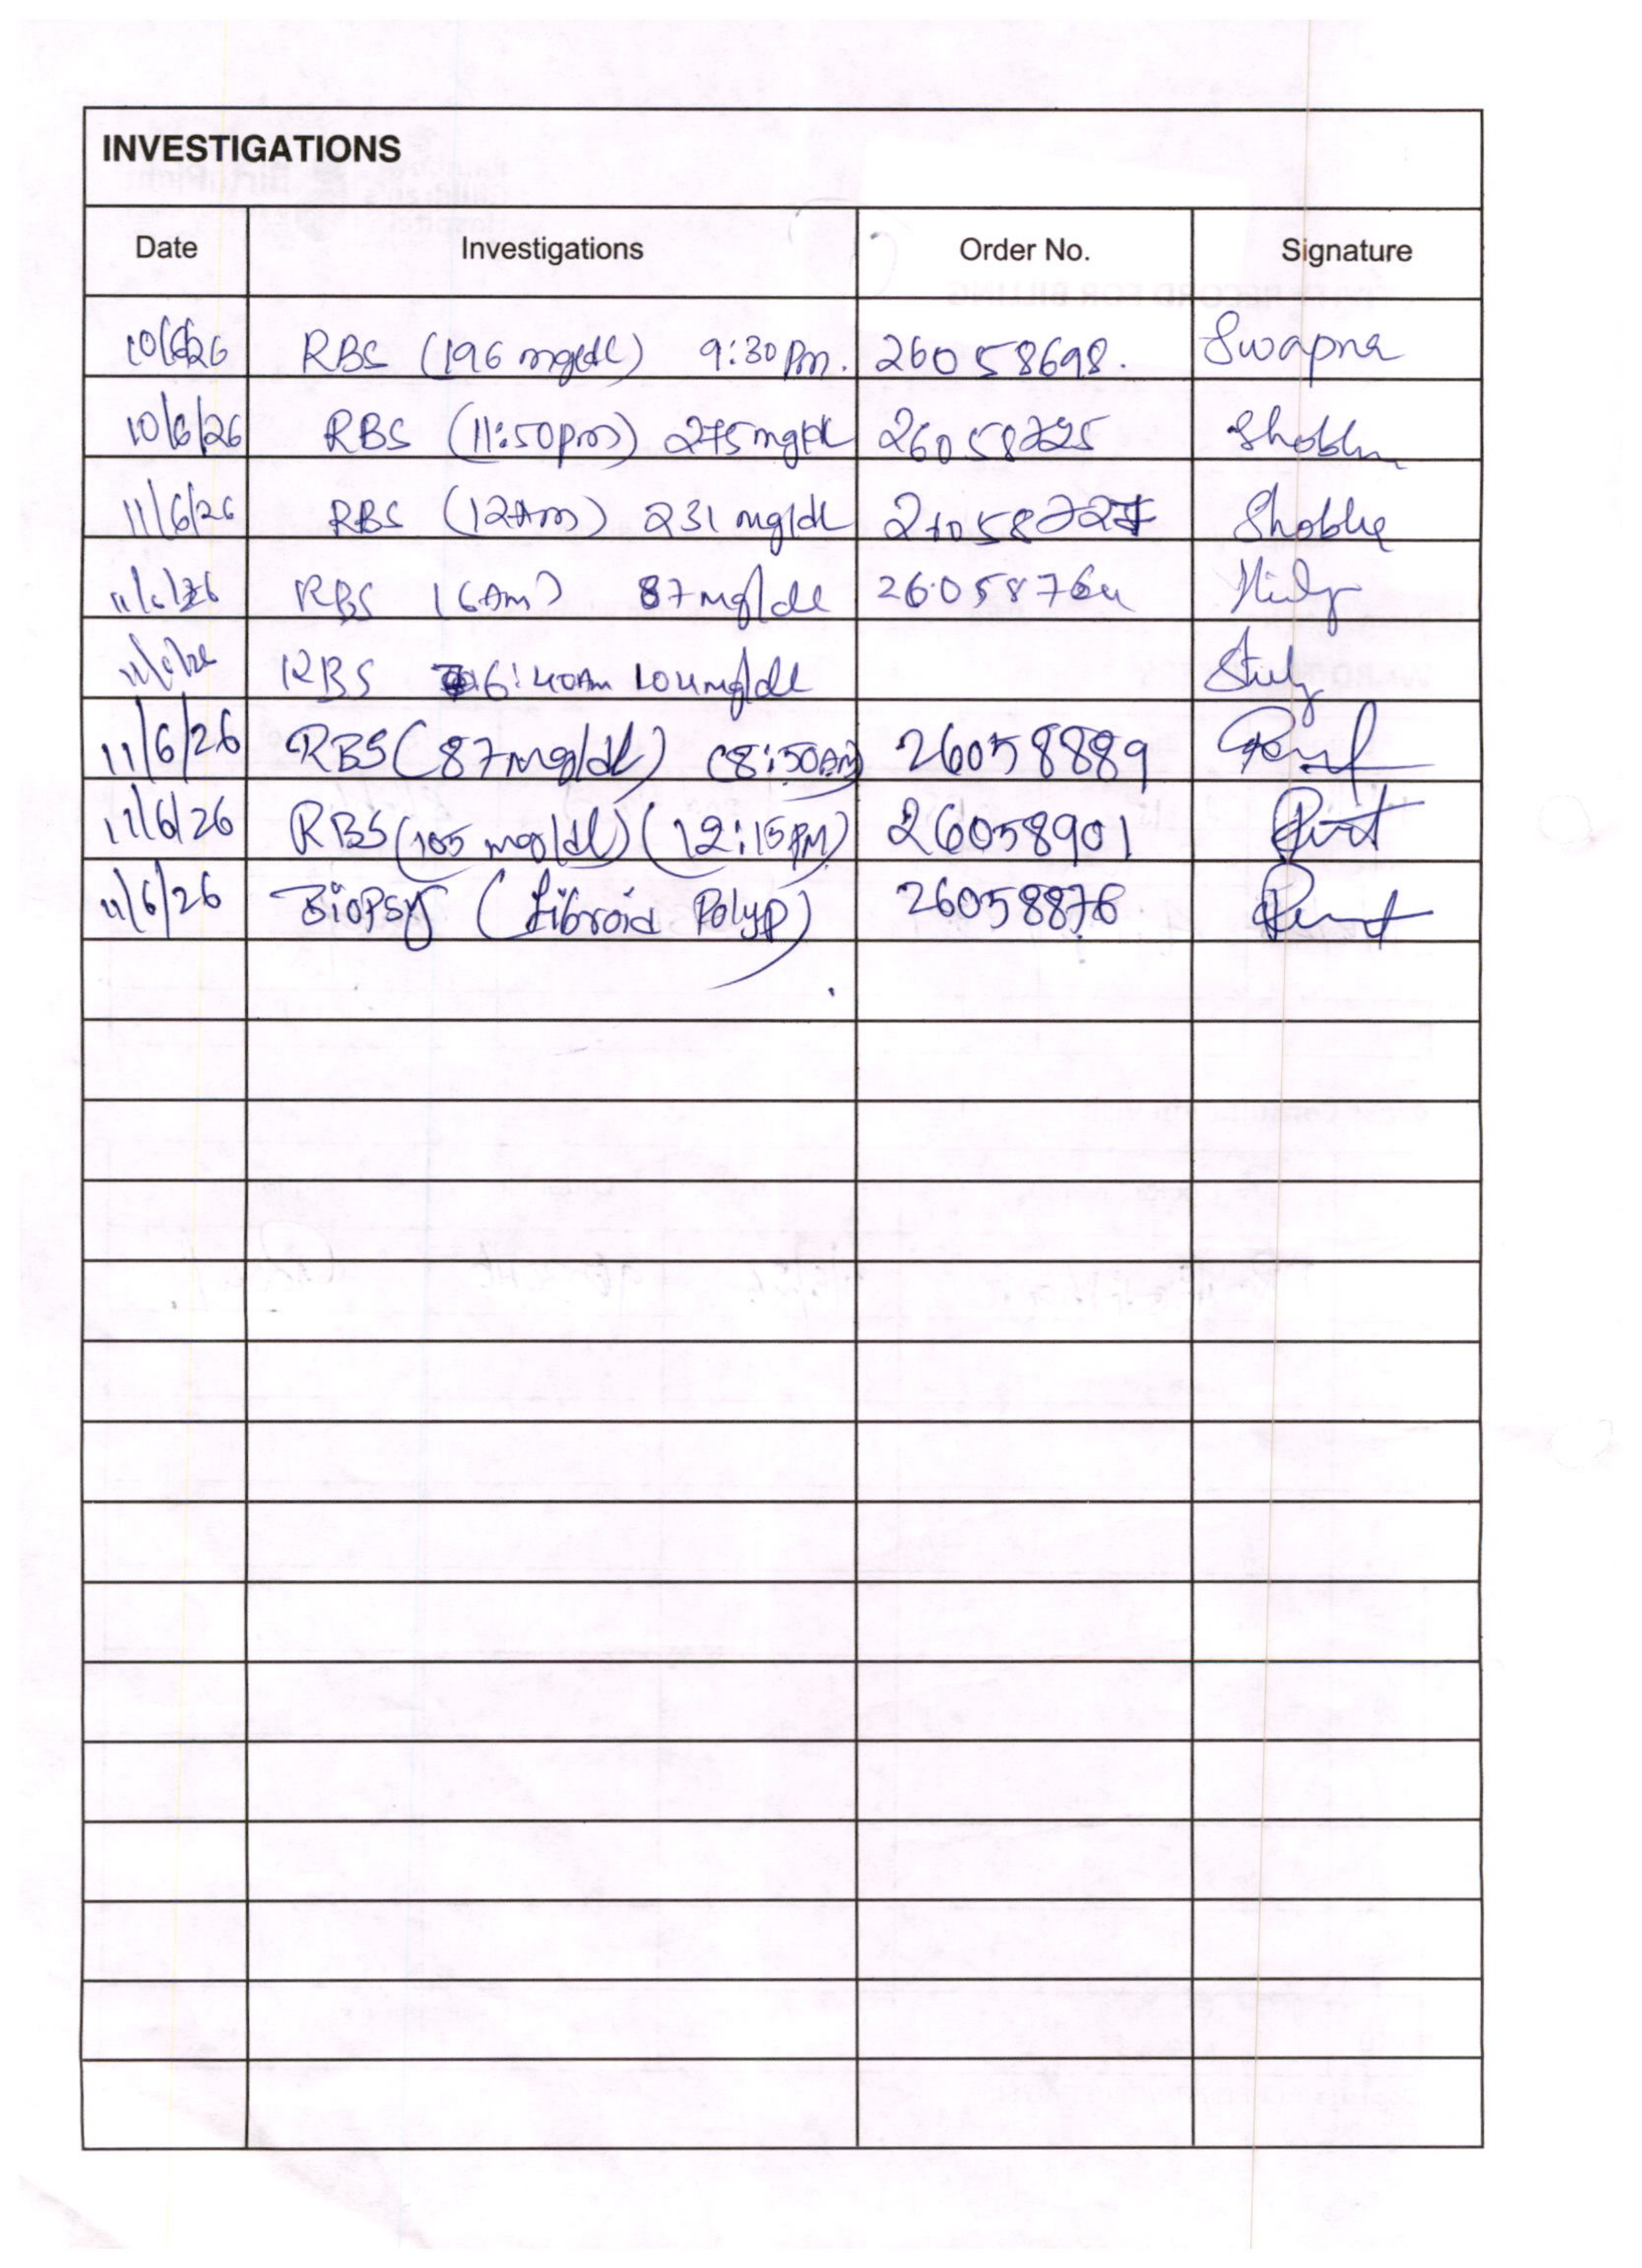 INVESTIGATIONS
Date Investigations Order No. Signature
10/6/26 RBS (196 mg/dl) 9:30 pm. 26058698. Swapna
10/6/26 RBS (11:50pm) 275mg/dl 26058725 Shobha
11/6/26 RBS (12Am) 231 mg/dl 26058727 Shobha
11/6/26 RBS (6Am) 87mg/dl 26058764
11/6/26 RBS 6:40Am 104mg/dl
11/6/26 RBS (87mg/dl) (8:50AM) 26058889
11/6/26 RBS (105 mg/dl) (12:15PM) 26058901
11/6/26 Biopsy (Fibroid Polyp) 26058876